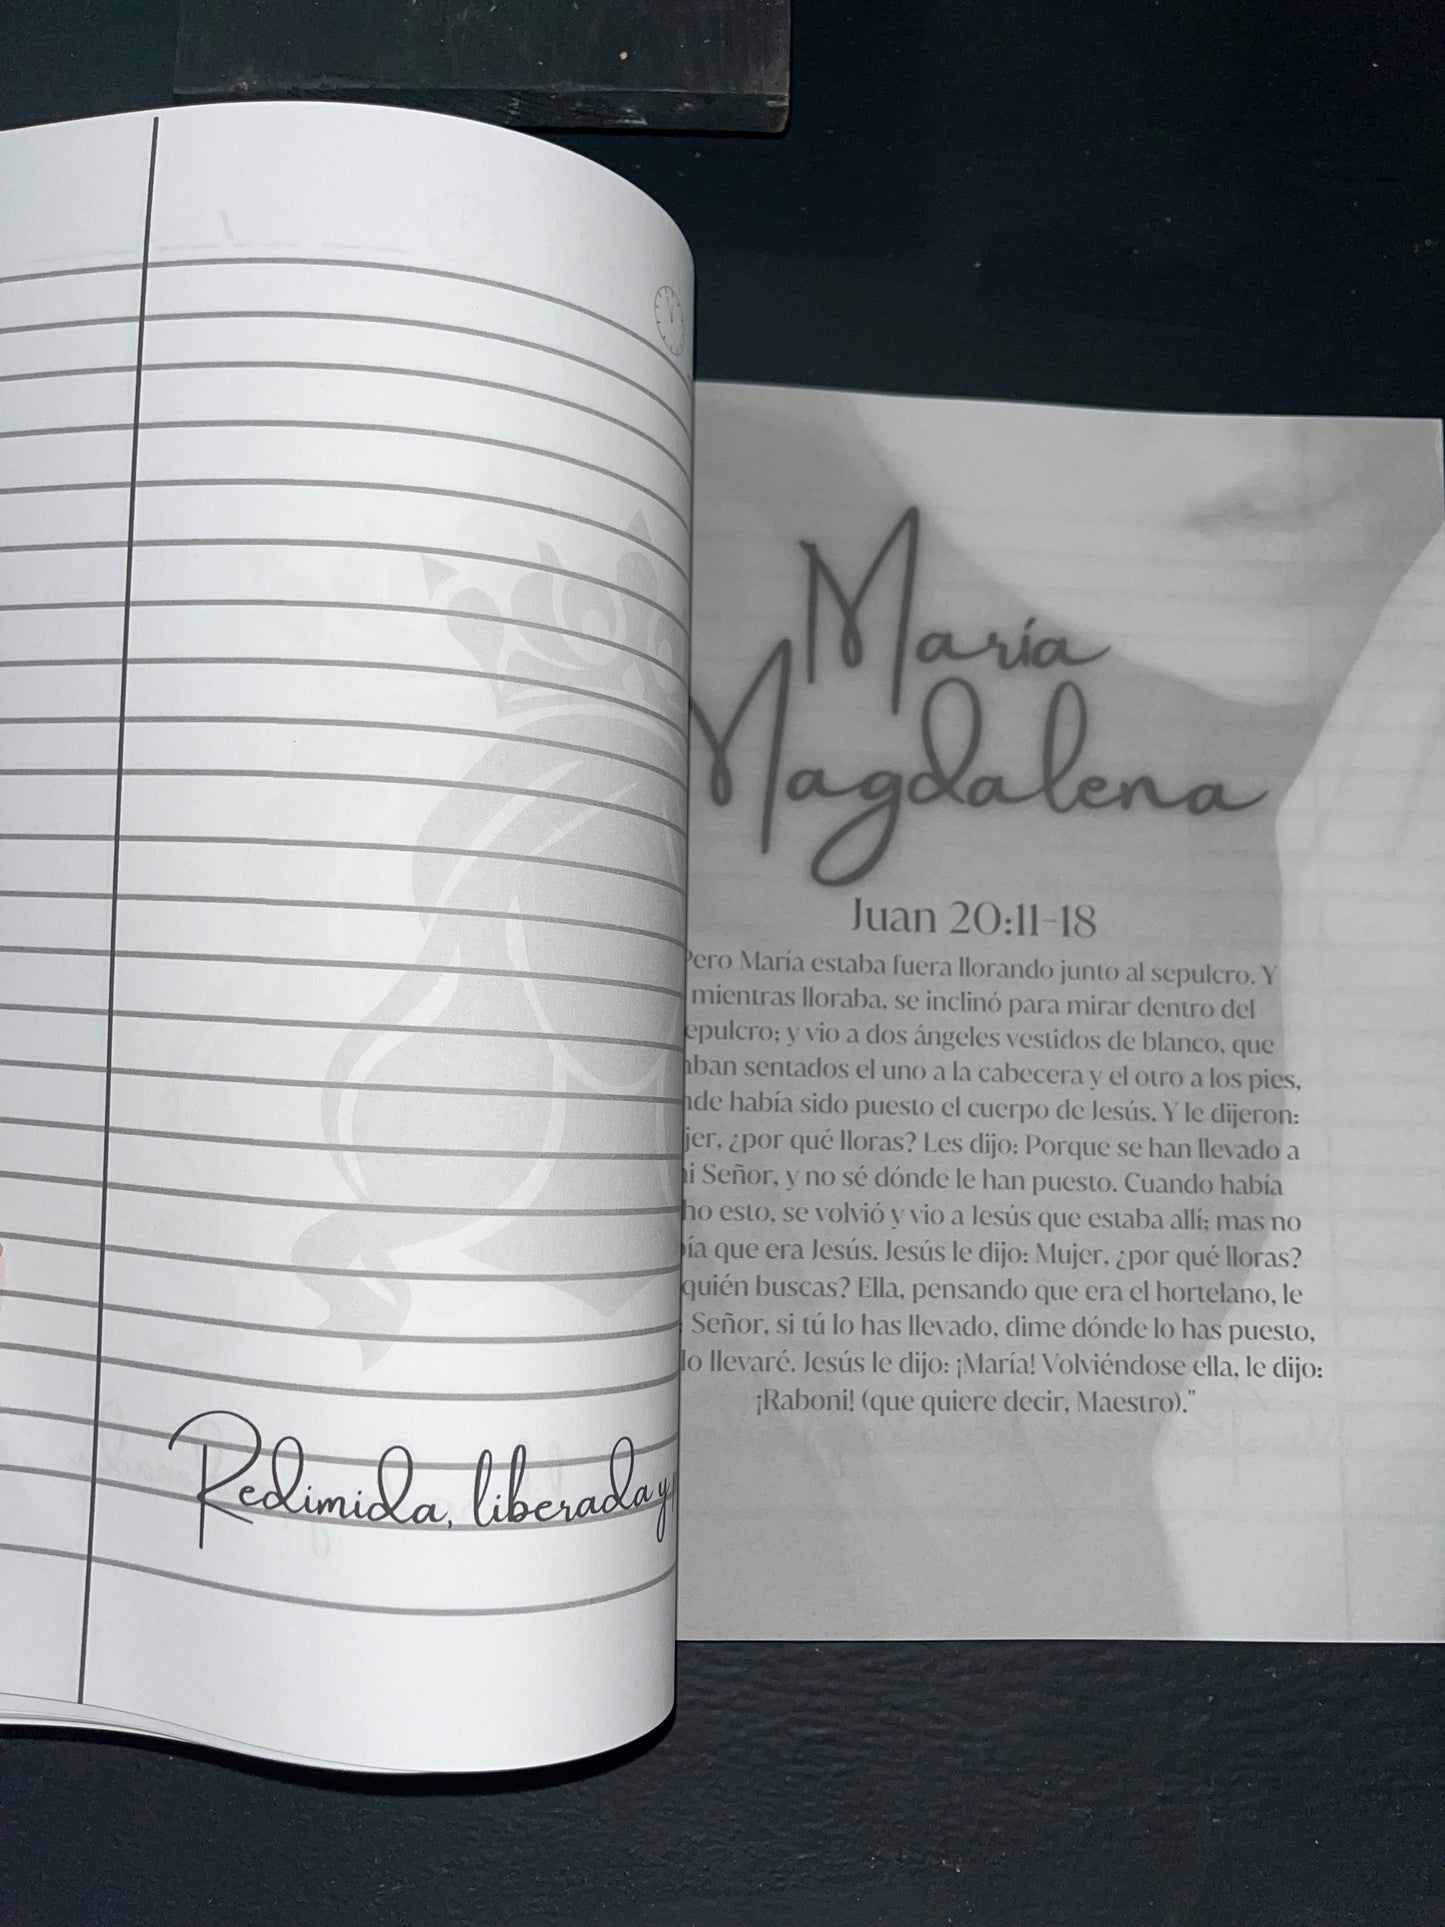 Redimida, liberada y
María
Magdalena
Juan 20:11-18
Pero María estaba fuera llorando junto al sepulcro. Y
mientras lloraba, se inclinó para mirar dentro del
epulcro; y vio a dos ángeles vestidos de blanco, que
aban sentados el uno a la cabecera y el otro a los pies,
nde había sido puesto el cuerpo de Jesús. Y le dijeron:
jer, ¿por qué lloras? Les dijo: Porque se han llevado a
i Señor, y no sé dónde le han puesto. Cuando había
ho esto, se volvió y vio a Jesús que estaba allí; mas no
ía que era Jesús. Jesús le dijo: Mujer, ¿por qué lloras?
quién buscas? Ella, pensando que era el hortelano, le
: Señor, si tú lo has llevado, dime dónde lo has puesto,
lo llevaré. Jesús le dijo: ¡María! Volviéndose ella, le dijo:
¡Raboni! (que quiere decir, Maestro)."